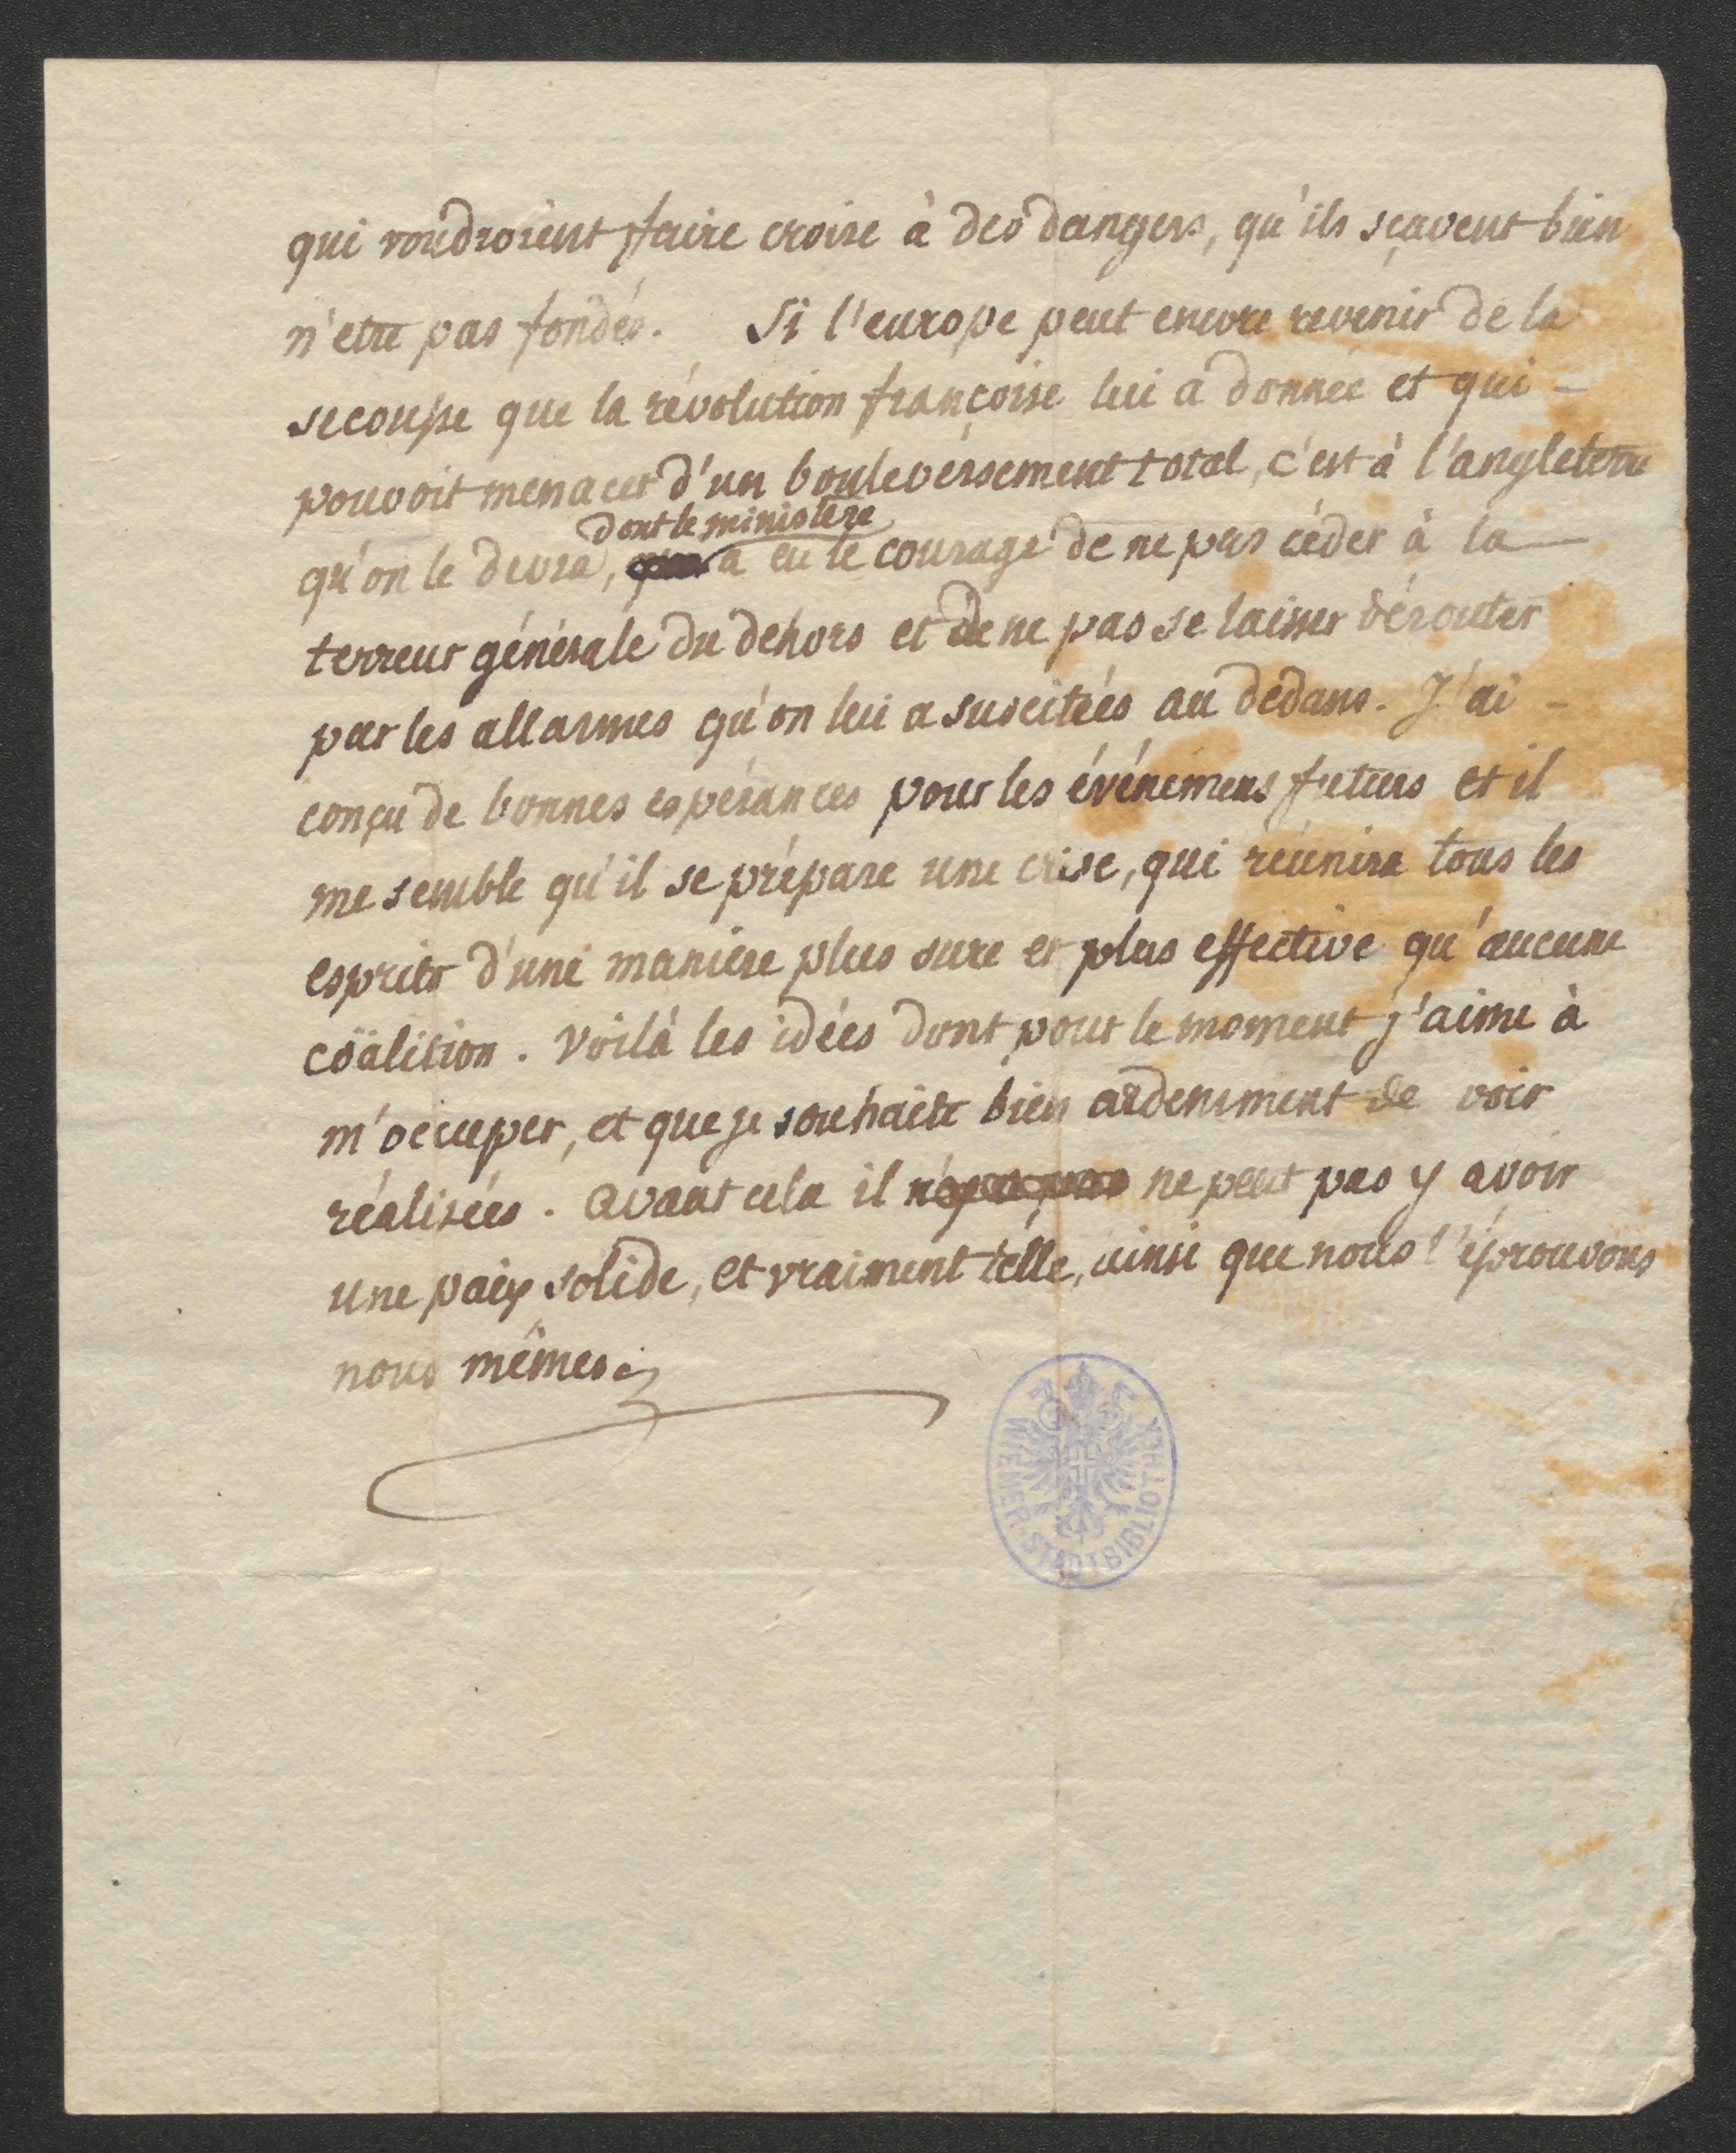 qui voudroient faire croire à des dangers, qu'ils sçavent bien
n'etre pas fondés. Si l'europe peut encore revenir de la
secousse que la révolution françoise lui a donnée et qui -
pouvoit menacer d'un bouleversement total, c'est à l'angleterre
dont le ministère
qu'on le devra, a eu le courage de ne pas céder à la
terreur générale du dehors et de ne pas se laisser dérouter
par les allarmes qu'on lui a suscitées au dedans. J'ai -
conçu de bonnes espérances pour les événemens futurs et il
me semble qu'il se prépare une crise, qui réunira tous les
esprits d'une manière plus sure et plus effective qu'aucune
cöalition. Voilà les idées dont pour le moment j'aime à
m'occuper, et que je souhaite bien ardemment de voir
réalisées. Avant cela il ne peut pas y avoir
une paix solide, et vraiment télle, ainsi que nous l'éprouvons
nous mêmes.
WIENER STADTBIBLIOTHEK